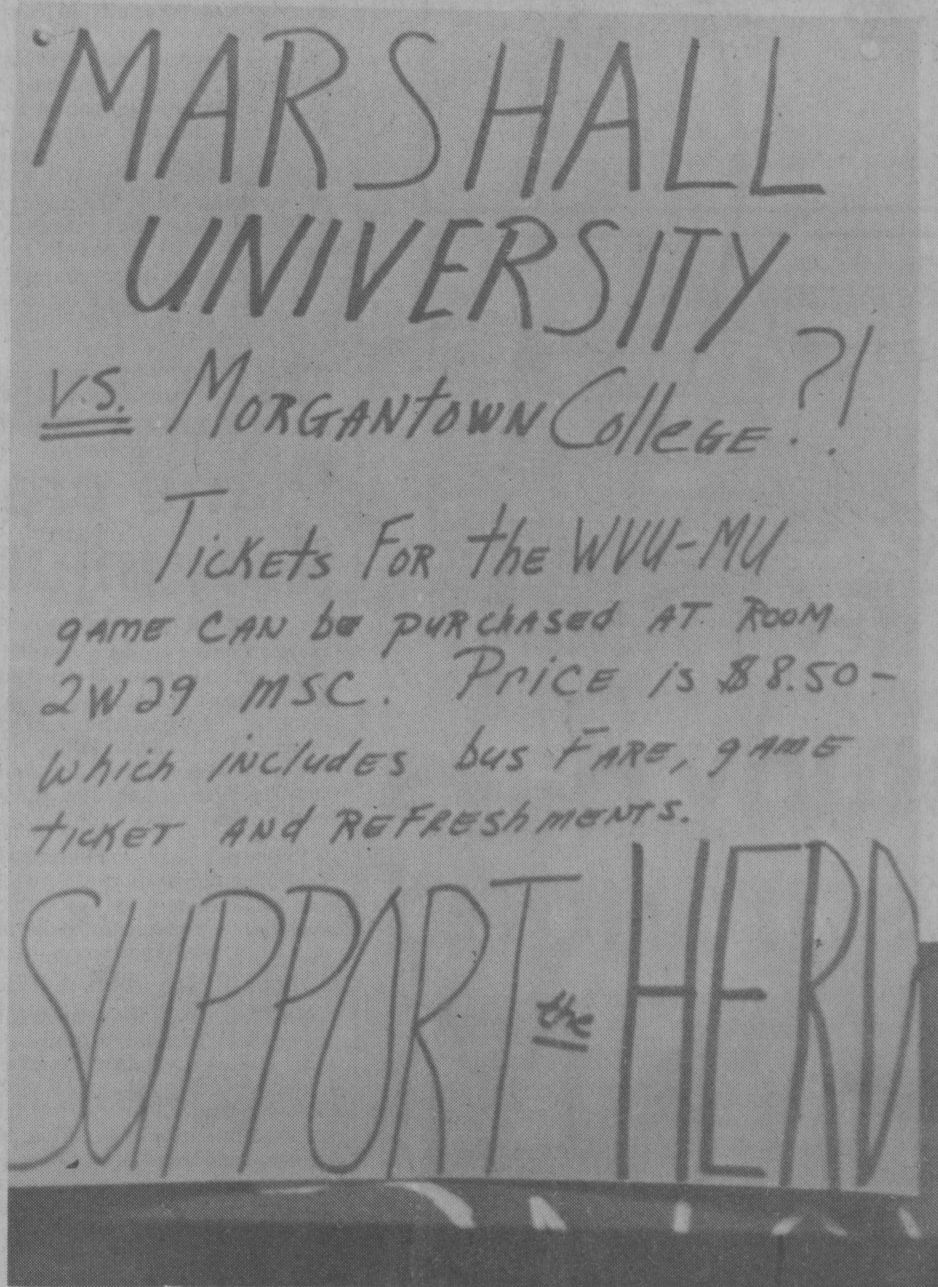 MARSHALL
UNIVERSITY
V.S. MORGANTOWN COLLEGE?!
TICKETS FOR the WVU-MU
GAME CAN be PURCHASED AT ROOM
2W29 MSC. PRICE is $8.50-
which includes bus FARE, GAME
ticket AND REFRESHMENTS.
SUPPORT the HERD